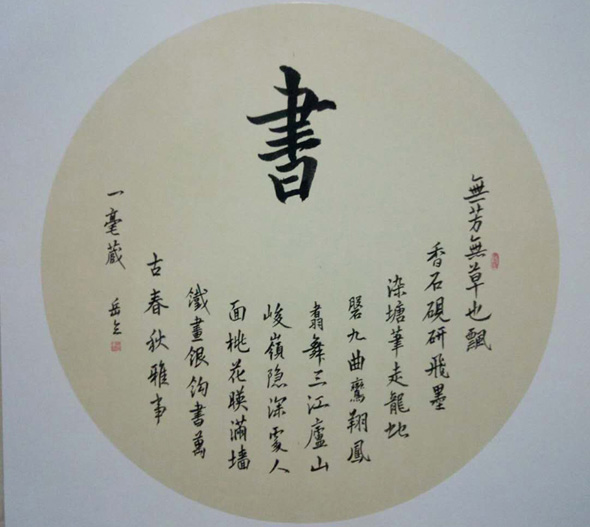 書
無芳無草也飄
香石硯研飛墨
染塘筆走龍虵
磐九曲鸞翔鳳
翥舞三江廬山
峻嶺隐深處人
面桃花暎滿墙
鐵畫银鈎書萬
古春秋雅事
一毫蔵
岳